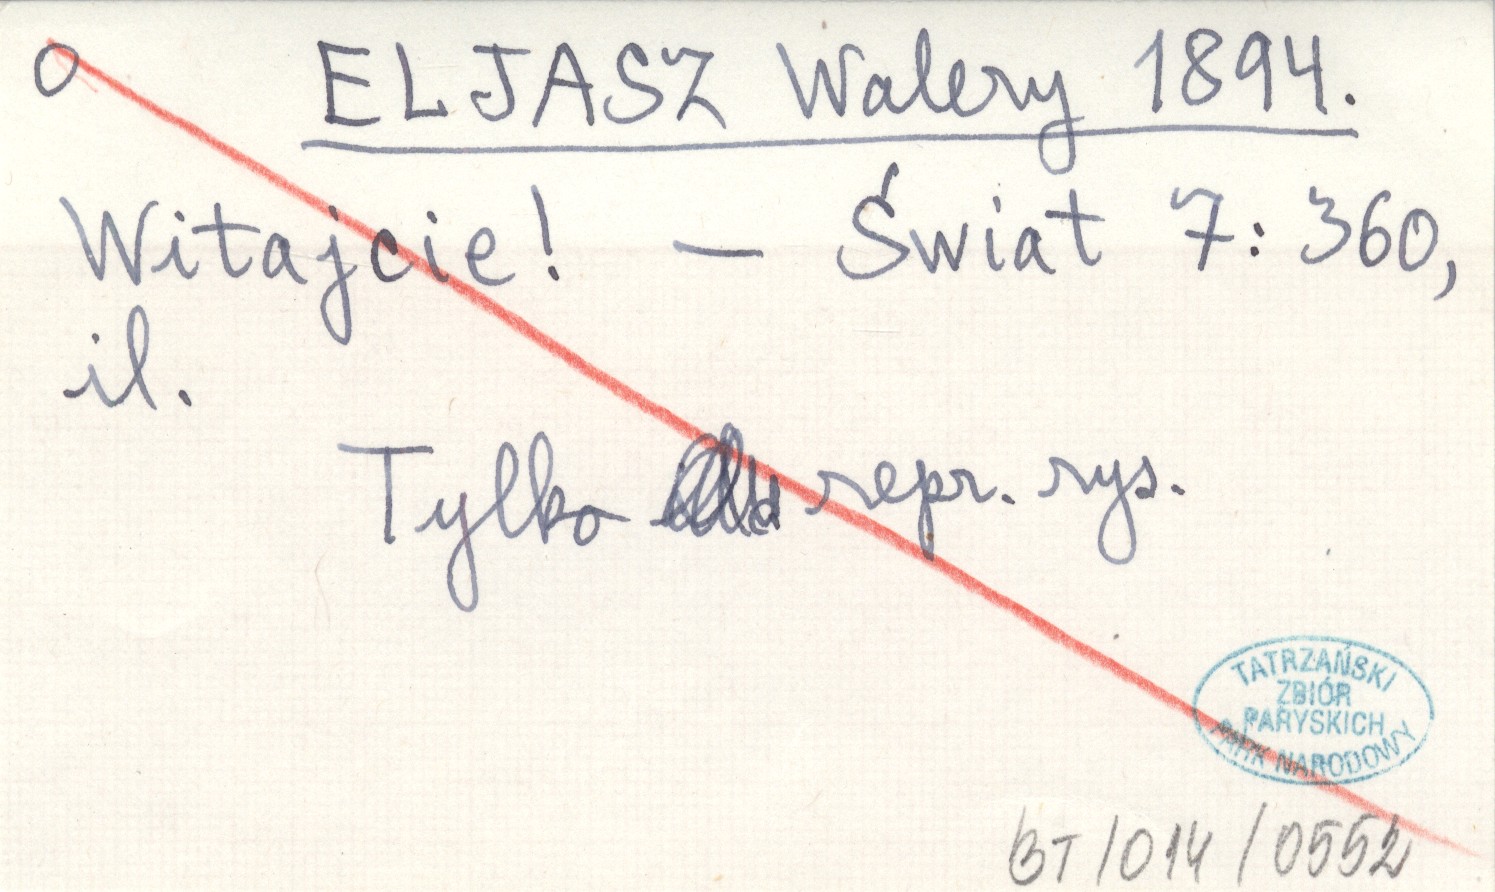 O ELJASZ Walery 1894.
Witajcie! — Świat 7: 360,
il.
Tylko repr. rys.
TATRZAŃSKI
ZBIÓR
PARYSKICH
PARK NARODOWY
BT/014/0552